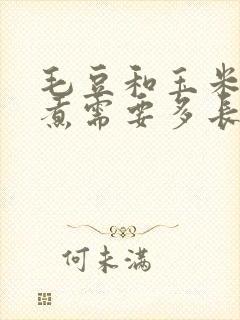 毛豆和玉米
煮需要多長
何未滿